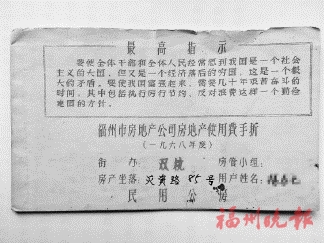 最高指示
要使全体干部和全体人民经常想到我国是一个社会
主义的大国，但又是一个经济落后的穷国，这是一个很
大的矛盾。要使我国富强起来，需要几十年艰苦奋斗的
时间，其中包括执行厉行节约、反对浪费这样一个勤俭
建国的方针。
福州市房地产公司房地产使用费手折
（一九六八年度）
街办：双桅 房管小组：
房产坐落： 路85号 用户姓名：
民用公房
福州晚报